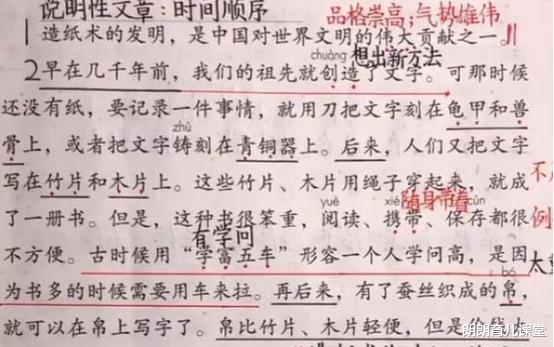 说明性文章：时间顺序
品格崇高；气势雄伟
1 造纸术的发明，是中国对世界文明的伟大贡献之一。
chuàng 想出新方法
2 早在几千年前，我们的祖先就创造了文字。可那时候
还没有纸，要记录一件事情，就用刀把文字刻在龟甲和兽
zhù
骨上，或者把文字铸刻在青铜器上。后来，人们又把文字
写在竹片和木片上。这些竹片、木片用绳子穿起来，就成
yuè xié 随身带着 cún
了一册书。但是，这种书很笨重，阅读、携带、保存都很
例
有学问
不方便。古时候用“学富五车”形容一个人学问高，是因
太
bó
为书多的时候需要用车来拉。再后来，有了蚕丝织成的帛，
就可以在帛上写字了。帛比竹片、木片轻便，但是
朗朗育儿课堂